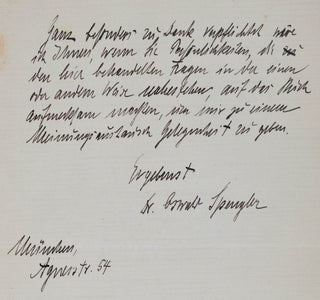 Ganz besonders zu Dank verpflichtet wäre
ich Ihnen, wenn Sie Persönlichkeiten, die
den hier behandelten Fragen in der einen
oder andern Weise nahestehen, auf das Buch
aufmerksam machten, um mir zu einem
Meinungsaustausch Gelegenheit zu geben.
Ergebenst
Dr. Oswald Spengler
München,
Agnesstr. 54